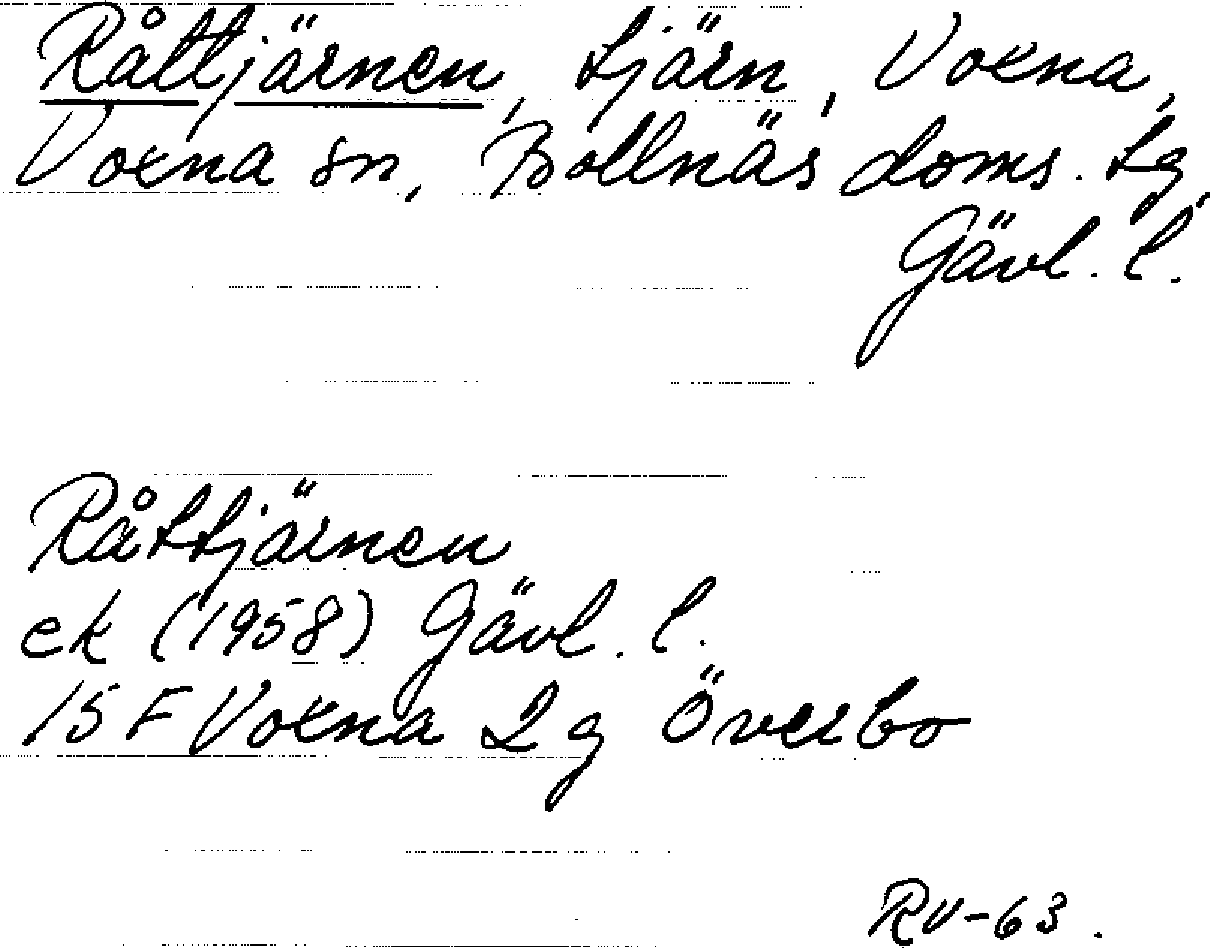 Råttjärnen, tjärn, Voxna,
Voxna sn, Bollnäs doms. tg,
Gävl. l.
Råttjärnen
ek (1958) Gävl. l.
15 F Voxna 2 g Överbo
RV-63.